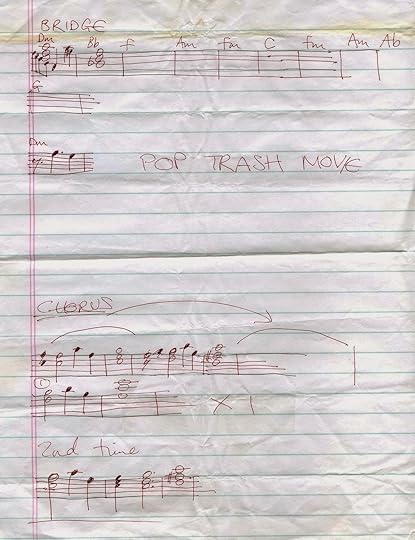 BRIDGE
Dm Bb F Am Fm C Fm Am Ab
G
Dm
POP TRASH MOVIE
CHORUS
1
X 1
2nd time